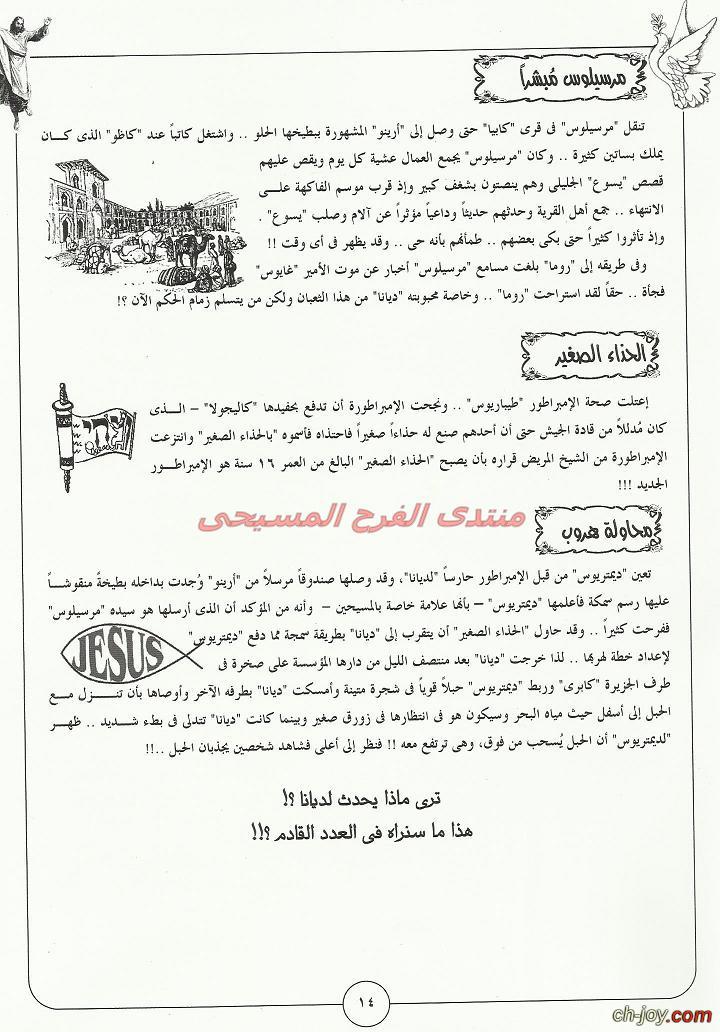 مرسيلوس مُبشراً
تنقل "مرسيلوس" فى قرى "كابيا" حتى وصل إلى "أرينو" المشهورة ببطيخها الحلو .. واشتغل كاتباً عند "كاظو" الذى كان
يملك بساتين كثيرة .. وكان "مرسيلوس" يجمع العمال عشية كل يوم ويقص عليهم
قصص "يسوع" الجليلى وهم ينصتون بشغف كبير وإذ قرب موسم الفاكهة علـــى
الانتهاء .. جمع أهل القرية وحدثهم حديثاً وداعياً مؤثراً عن آلام وصلب "يسوع" .
وإذ تأثروا كثيراً حتى بكى بعضهم .. طمأنهم بأنه حى .. وقد يظهر فى أى وقت !!
وفى طريقه إلى "روما" بلغت مسامع "مرسيلوس" أخبار عن موت الأمير "غايوس"
فجأة .. حقاً لقد استراحت "روما" .. وخاصة محبوبته "ديانا" من هذا الثعبان ولكن من يتسلم زمام الحكم الآن ؟!
الحذاء الصغير
إعتلت صحة الإمبراطور "طيباريوس" .. ونجحت الإمبراطورة أن تدفع بحفيدها "كاليجولا" – الـــذى
كان مُدللاً من قادة الجيش حتى أن أحدهم صنع له حذاءاً صغيراً فاحتذاه فأسموه "بالحذاء الصغير" وانتزعت
الإمبراطورة من الشيخ المريض قراره بأن يصبح "الحذاء الصغير" البالغ من العمر ١٦ سنة هو الإمبراطــور
الجديد !!!
منتدى الفرح المسيحى
محاولة هروب
تعين "ديمتريوس" من قبل الإمبراطور حارساً "لديانا"، وقد وصلها صندوقاً مرسلاً من "أرينو" وُجدت بداخله بطيخةً منقوشــاً
عليها رسم سمكة فأعلمها "ديمتريوس" – بأنها علامة خاصة بالمسيحين – وأنه من المؤكد أن الذى أرسلها هو سيده "مرسيلوس"
ففرحت كثيراً .. وقد حاول "الحذاء الصغير" أن يتقرب إلى "ديانا" بطريقة سمجة مما دفع "ديمتريوس"
JESUS
لإعداد خطة لهربها .. لذا خرجت "ديانا" بعد منتصف الليل من دارها المؤسسة على صخرة فى
طرف الجزيرة "كابرى" وربط "ديمتريوس" حبلاً قوياً فى شجرة متينة وأمسكت "ديانا" بطرفه الآخر وأوصاها بأن تنـــزل مـع
الحبل إلى أسفل حيث مياه البحر وسيكون هو فى انتظارها فى زورق صغير وبينما كانت "ديانا" تتدلى فى بطء شـديد .. ظهــر
"لديمتريوس" أن الحبل يُسحب من فوق، وهى ترتفع معه !! فنظر إلى أعلى فشاهد شخصين يجذبان الحبل ..!!
ترى ماذا يحدث لديانا ؟!
هذا ما سنراه فى العدد القادم ؟!!
١٤
ch-joy.com